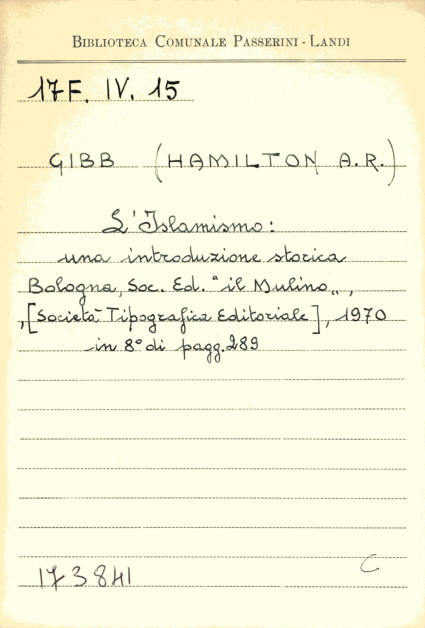 BIBLIOTECA COMUNALE PASSERINI - LANDI
17F. IV. 15
GIBB (HAMILTON A.R.)
L'Islamismo:
una introduzione storica
Bologna, Soc. Ed. "il Mulino„,
,[Società Tipografica Editoriale], 1970
in 8° di pagg. 289
173841
C